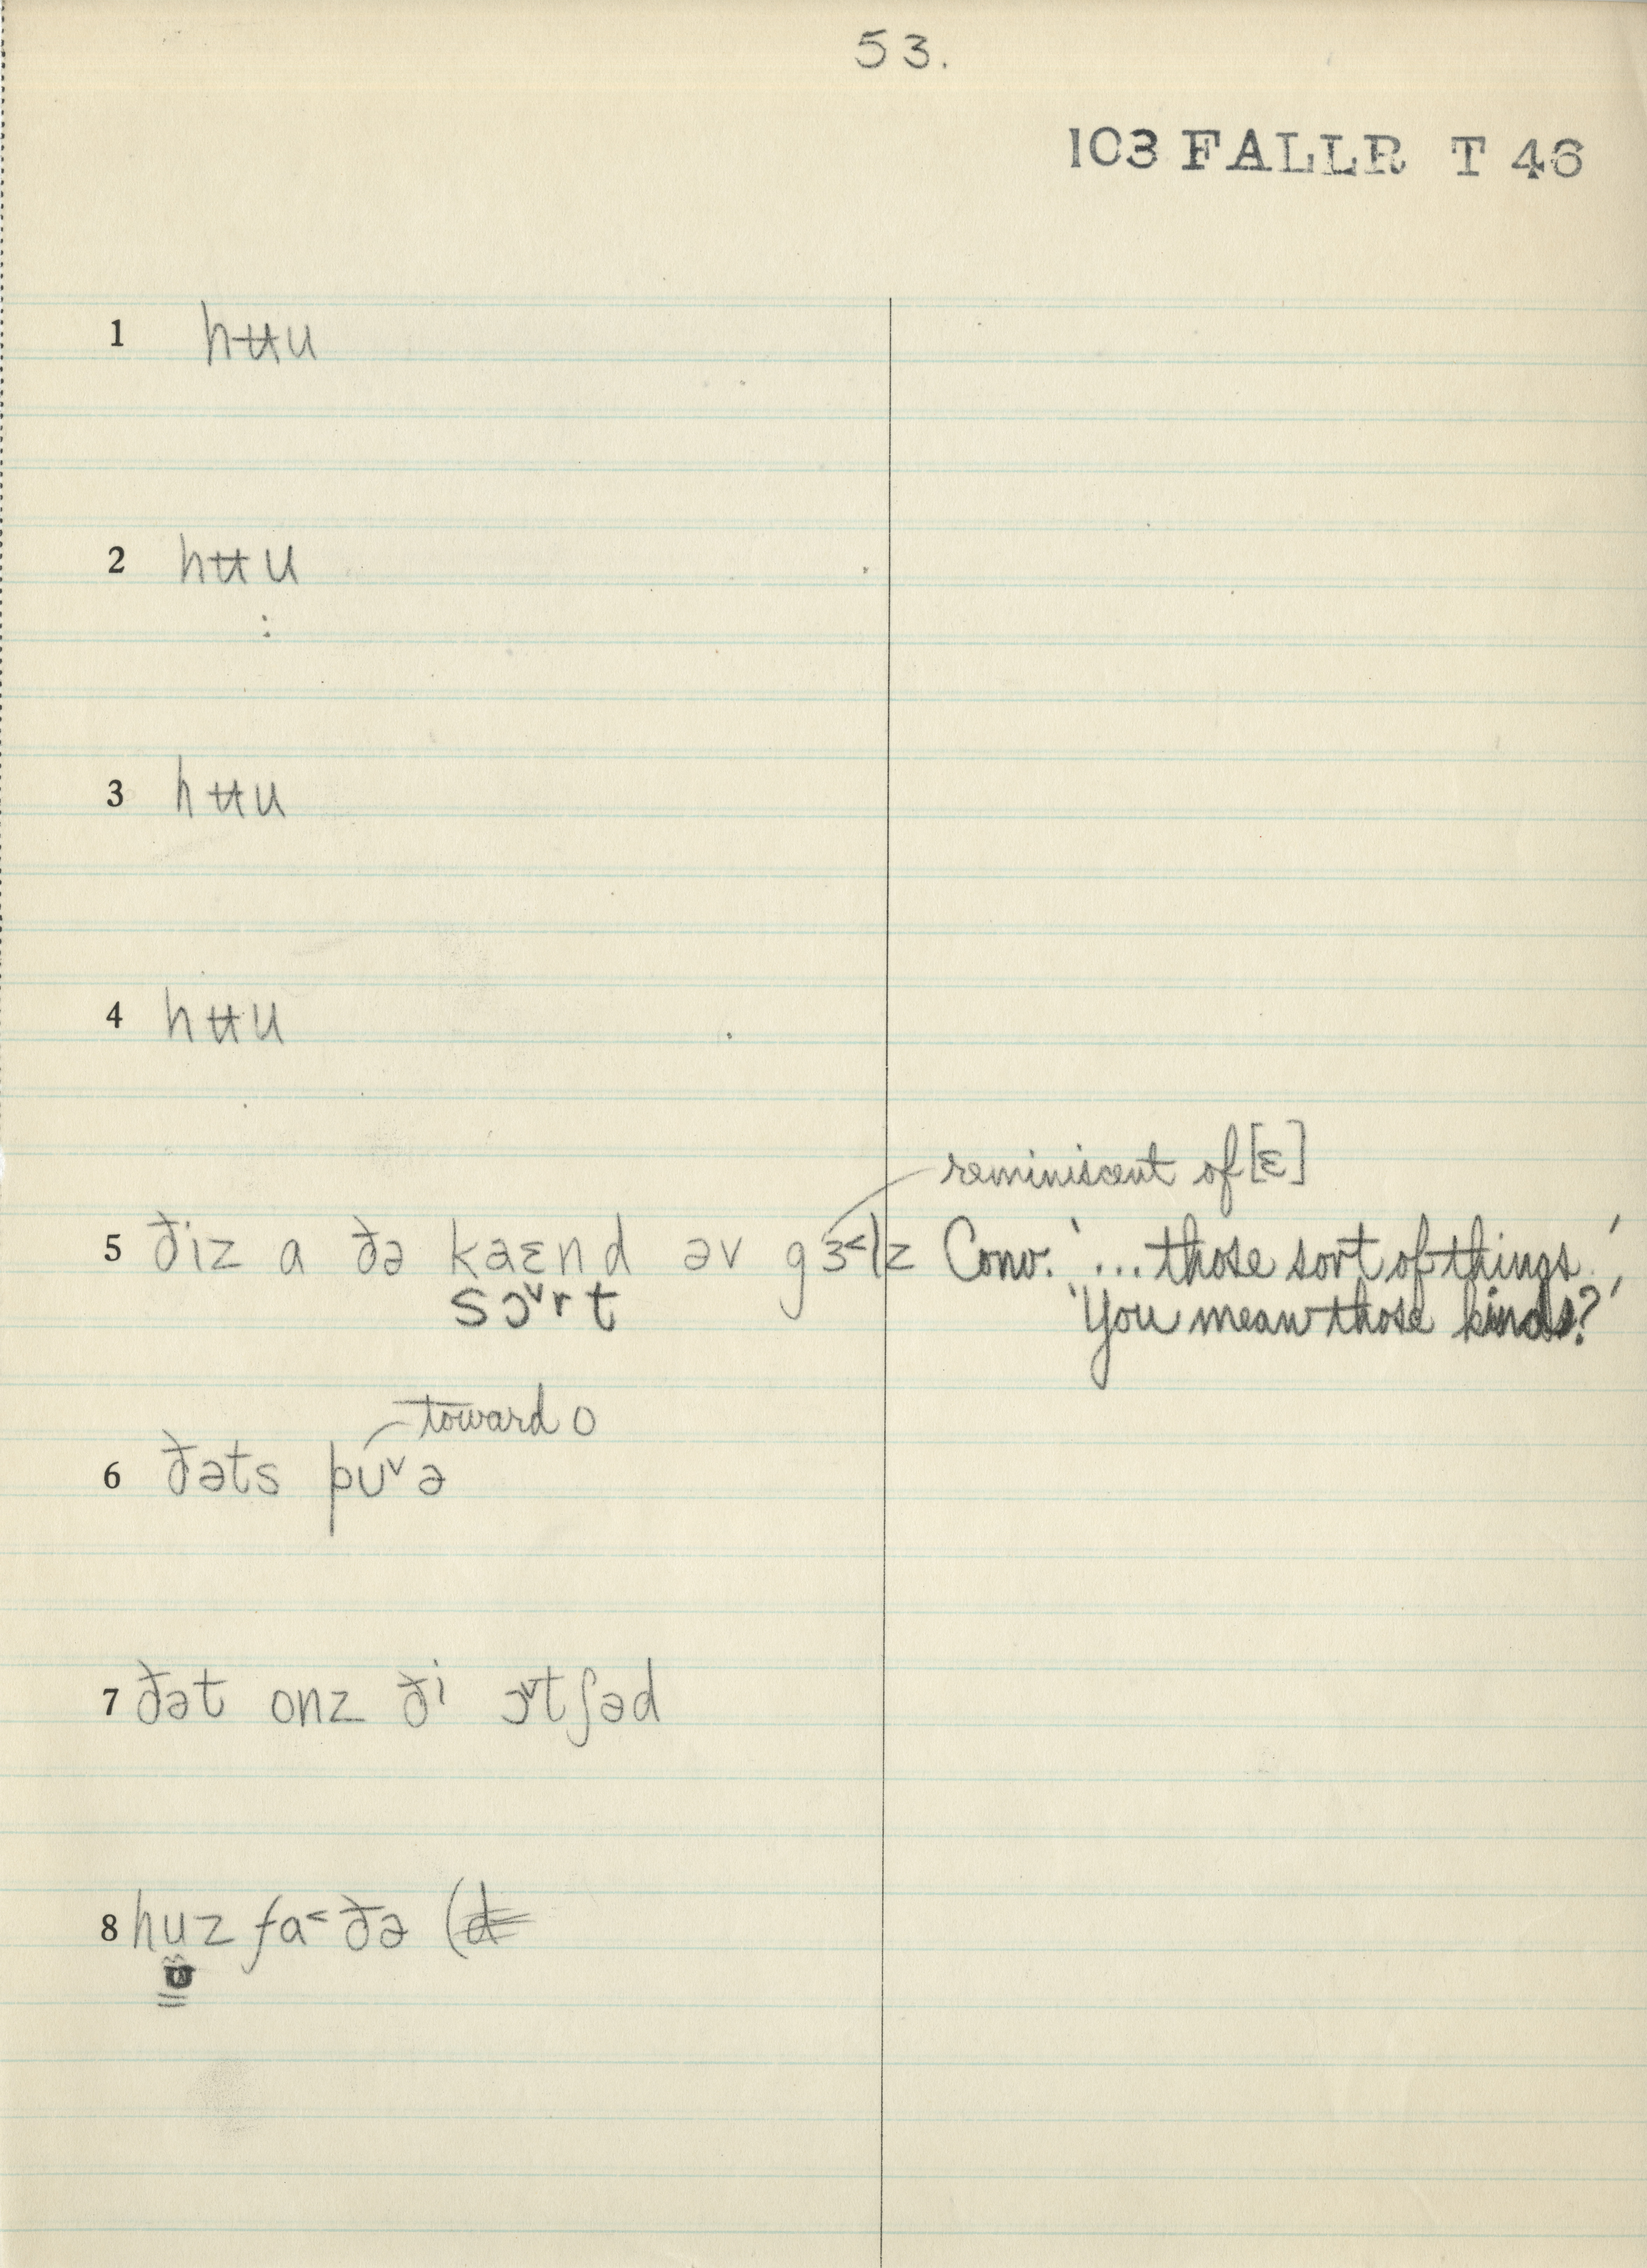 53.
103 FALLR T 46
1 hʉu
2 hʉu
3 hʉu
4 hʉu
reminiscent of [ɛ]
5 ðiz a ðə kaɛnd əv gɜ˂lz Conv. '...those sort of things.'
sɔ˅rt 'You mean those kinds?'
toward o
6 ðəts pʊ˅ə
7 ðət onz ði ɔ˅tʃəd
8 huz fa˂ðə (d